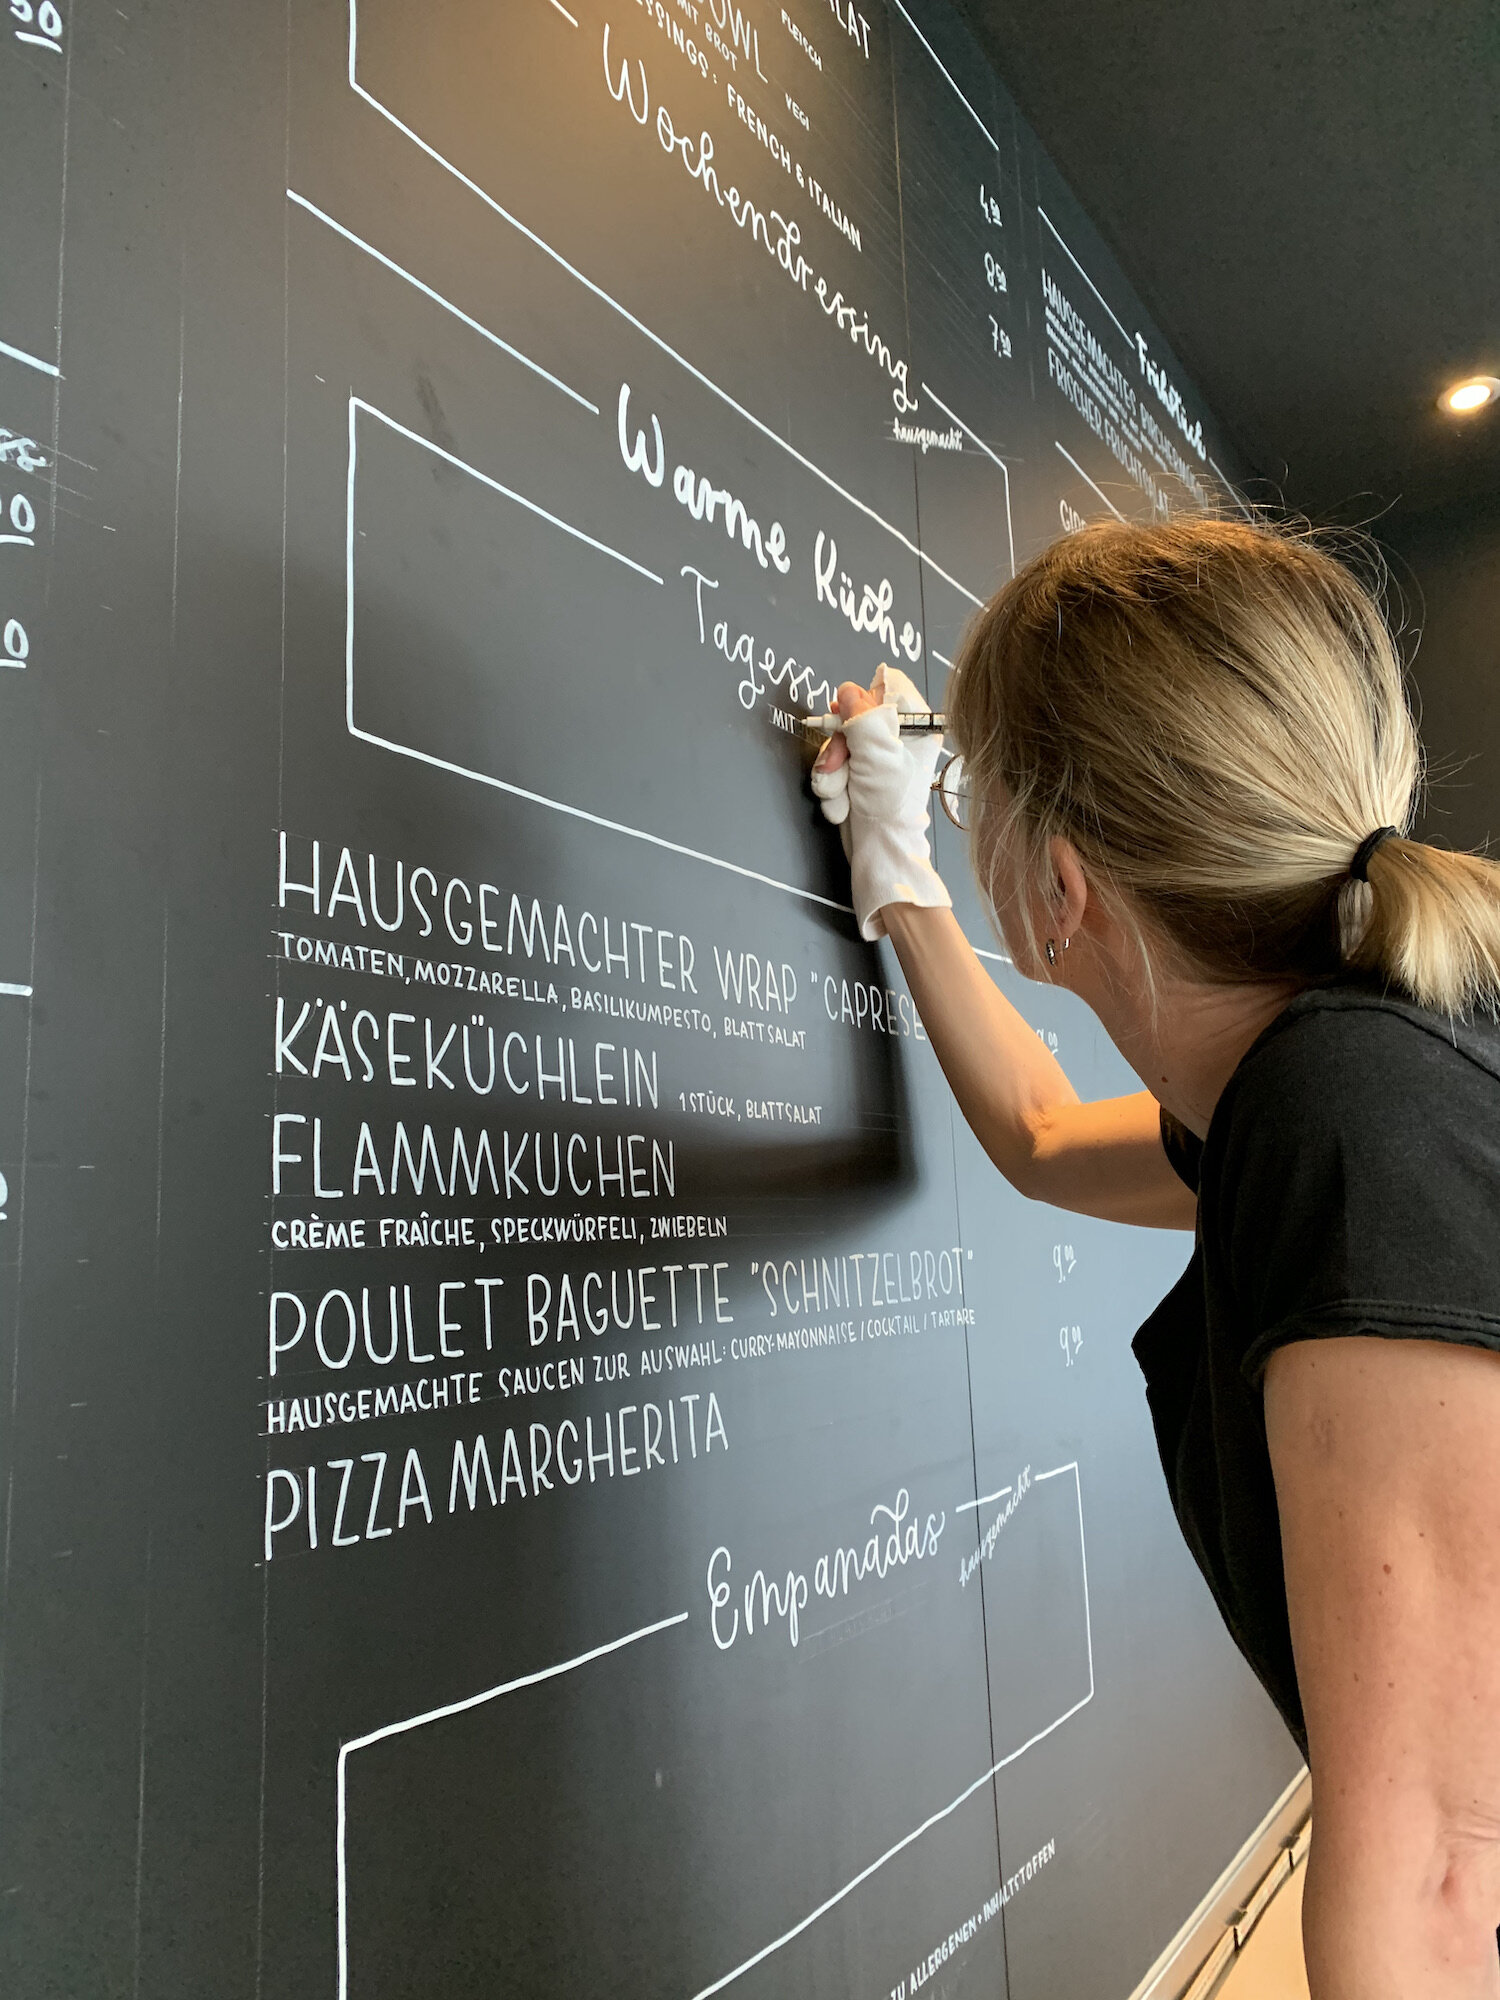 50
BOWL
MIT BROT
FLEISCH
VEGI
FRENCH & ITALIAN
Wochendressing
hausgemacht
4.50
8.50
7.50
Frühstück
HAUSGEMACHTES
FRISCHER
Warme Küche
MIT
HAUSGEMACHTER WRAP "CAPRESE
TOMATEN, MOZZARELLA, BASILIKUMPESTO, BLATTSALAT
KÄSEKÜCHLEIN 1 STÜCK, BLATTSALAT
FLAMMKUCHEN
CRÈME FRAÎCHE, SPECKWÜRFELI, ZWIEBELN
POULET BAGUETTE "SCHNITZELBROT" 9.00
HAUSGEMACHTE SAUCEN ZUR AUSWAHL: CURRY-MAYONNAISE / COCKTAIL / TARTARE
PIZZA MARGHERITA 9.00
Empanadas
hausgemacht
ZU ALLERGENEN + INHALTSTOFFEN